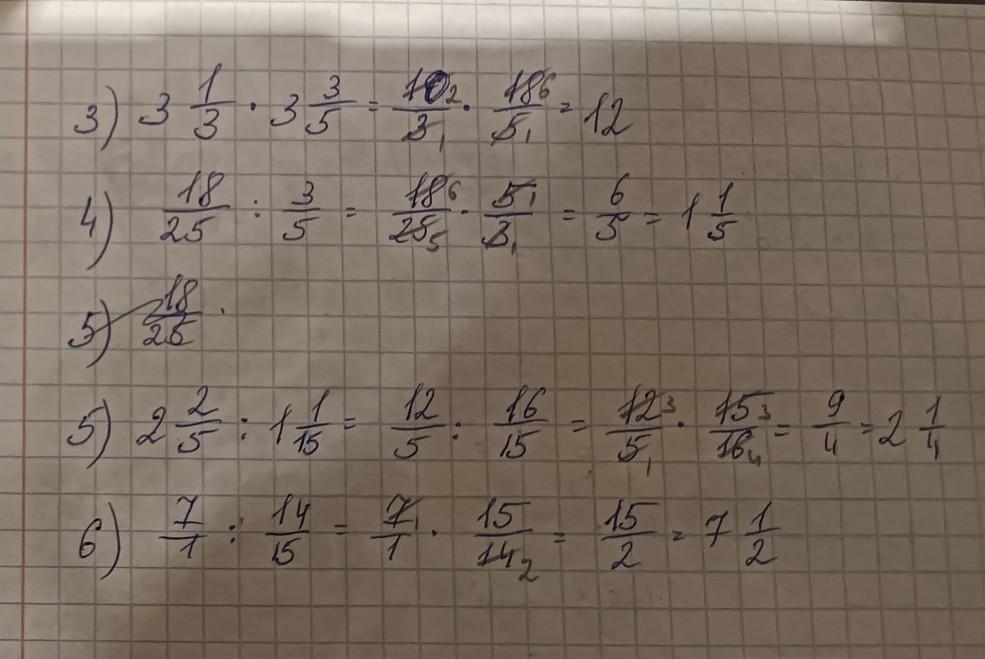 3) 3 1/3 · 3 3/5 = 10 2/3 1 · 18 6/5 1 = 12
4) 18/25 : 3/5 = 18 6/25 5 · 5 1/3 1 = 6/5 = 1 1/5
5) 18/25 ·
5) 2 2/5 : 1 1/15 = 12/5 : 16/15 = 12 3/5 1 · 15 3/16 4 = 9/4 = 2 1/4
6) 7/1 : 14/15 = 7 1/1 · 15/14 2 = 15/2 = 7 1/2